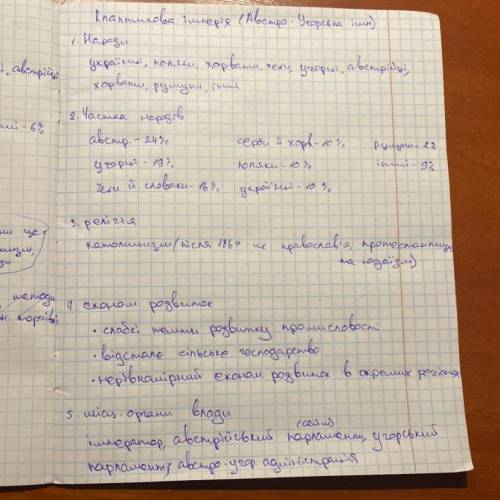 Клаптикова імперія (Австро-Угорська імп)
1. Народи
українці, поляки, хорвати, чехи, угорці, австрійці,
хорвати, румуни, інші
2. Частка народів
австр. - 24% серби й хорв. - 10% румуни - 22
угорці - 19% поляки - 10% інші - 9%
чехи й словаки - 16% українці - 10%
3. релігія
католицизм (після 1867 ще православ'я, протестантизм
та юдаїзм)
4 економ розвиток
• слабкі темпи розвитку промисловості
• відстале сільське господарство
• нерівномірний економ розвиток в окремих регіонах
5. місц. органи влади
(сейм)
імператор, австрійський парламент, угорський
парламент, австро-угор. адміністрація
і, австрійці
- 6%
ще